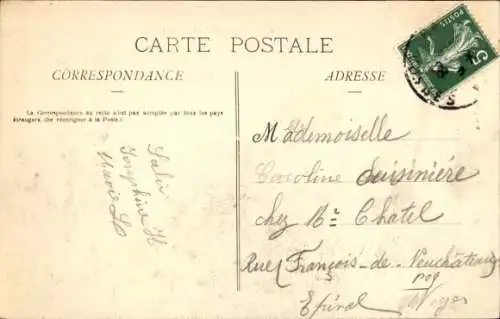 CARTE POSTALE
CORRESPONDANCE
La Correspondance au recto n'est pas acceptée par tous les pays
étrangers. (Se renseigner à la Poste.)
Joséphine H
Marie L
ADRESSE
POSTES
5
Mademoiselle
Caroline Cuisinière
chez Mr Chatel
Rue François-de-Neufchâteau
Epinal Vosges